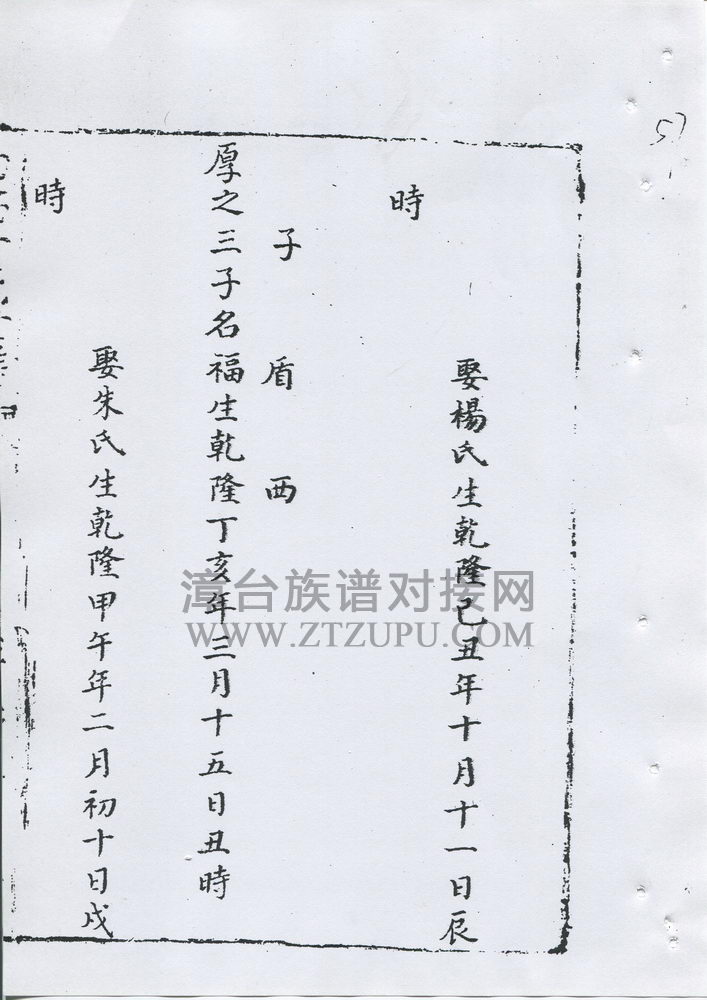 57
娶楊氏生乾隆己丑年十月十一日辰
時
子盾西
厚之三子名福生乾隆丁亥年三月十五日丑時
娶朱氏生乾隆甲午年二月初十日戌
時
漳台族谱对接网
WWW.ZTZUPU.COM